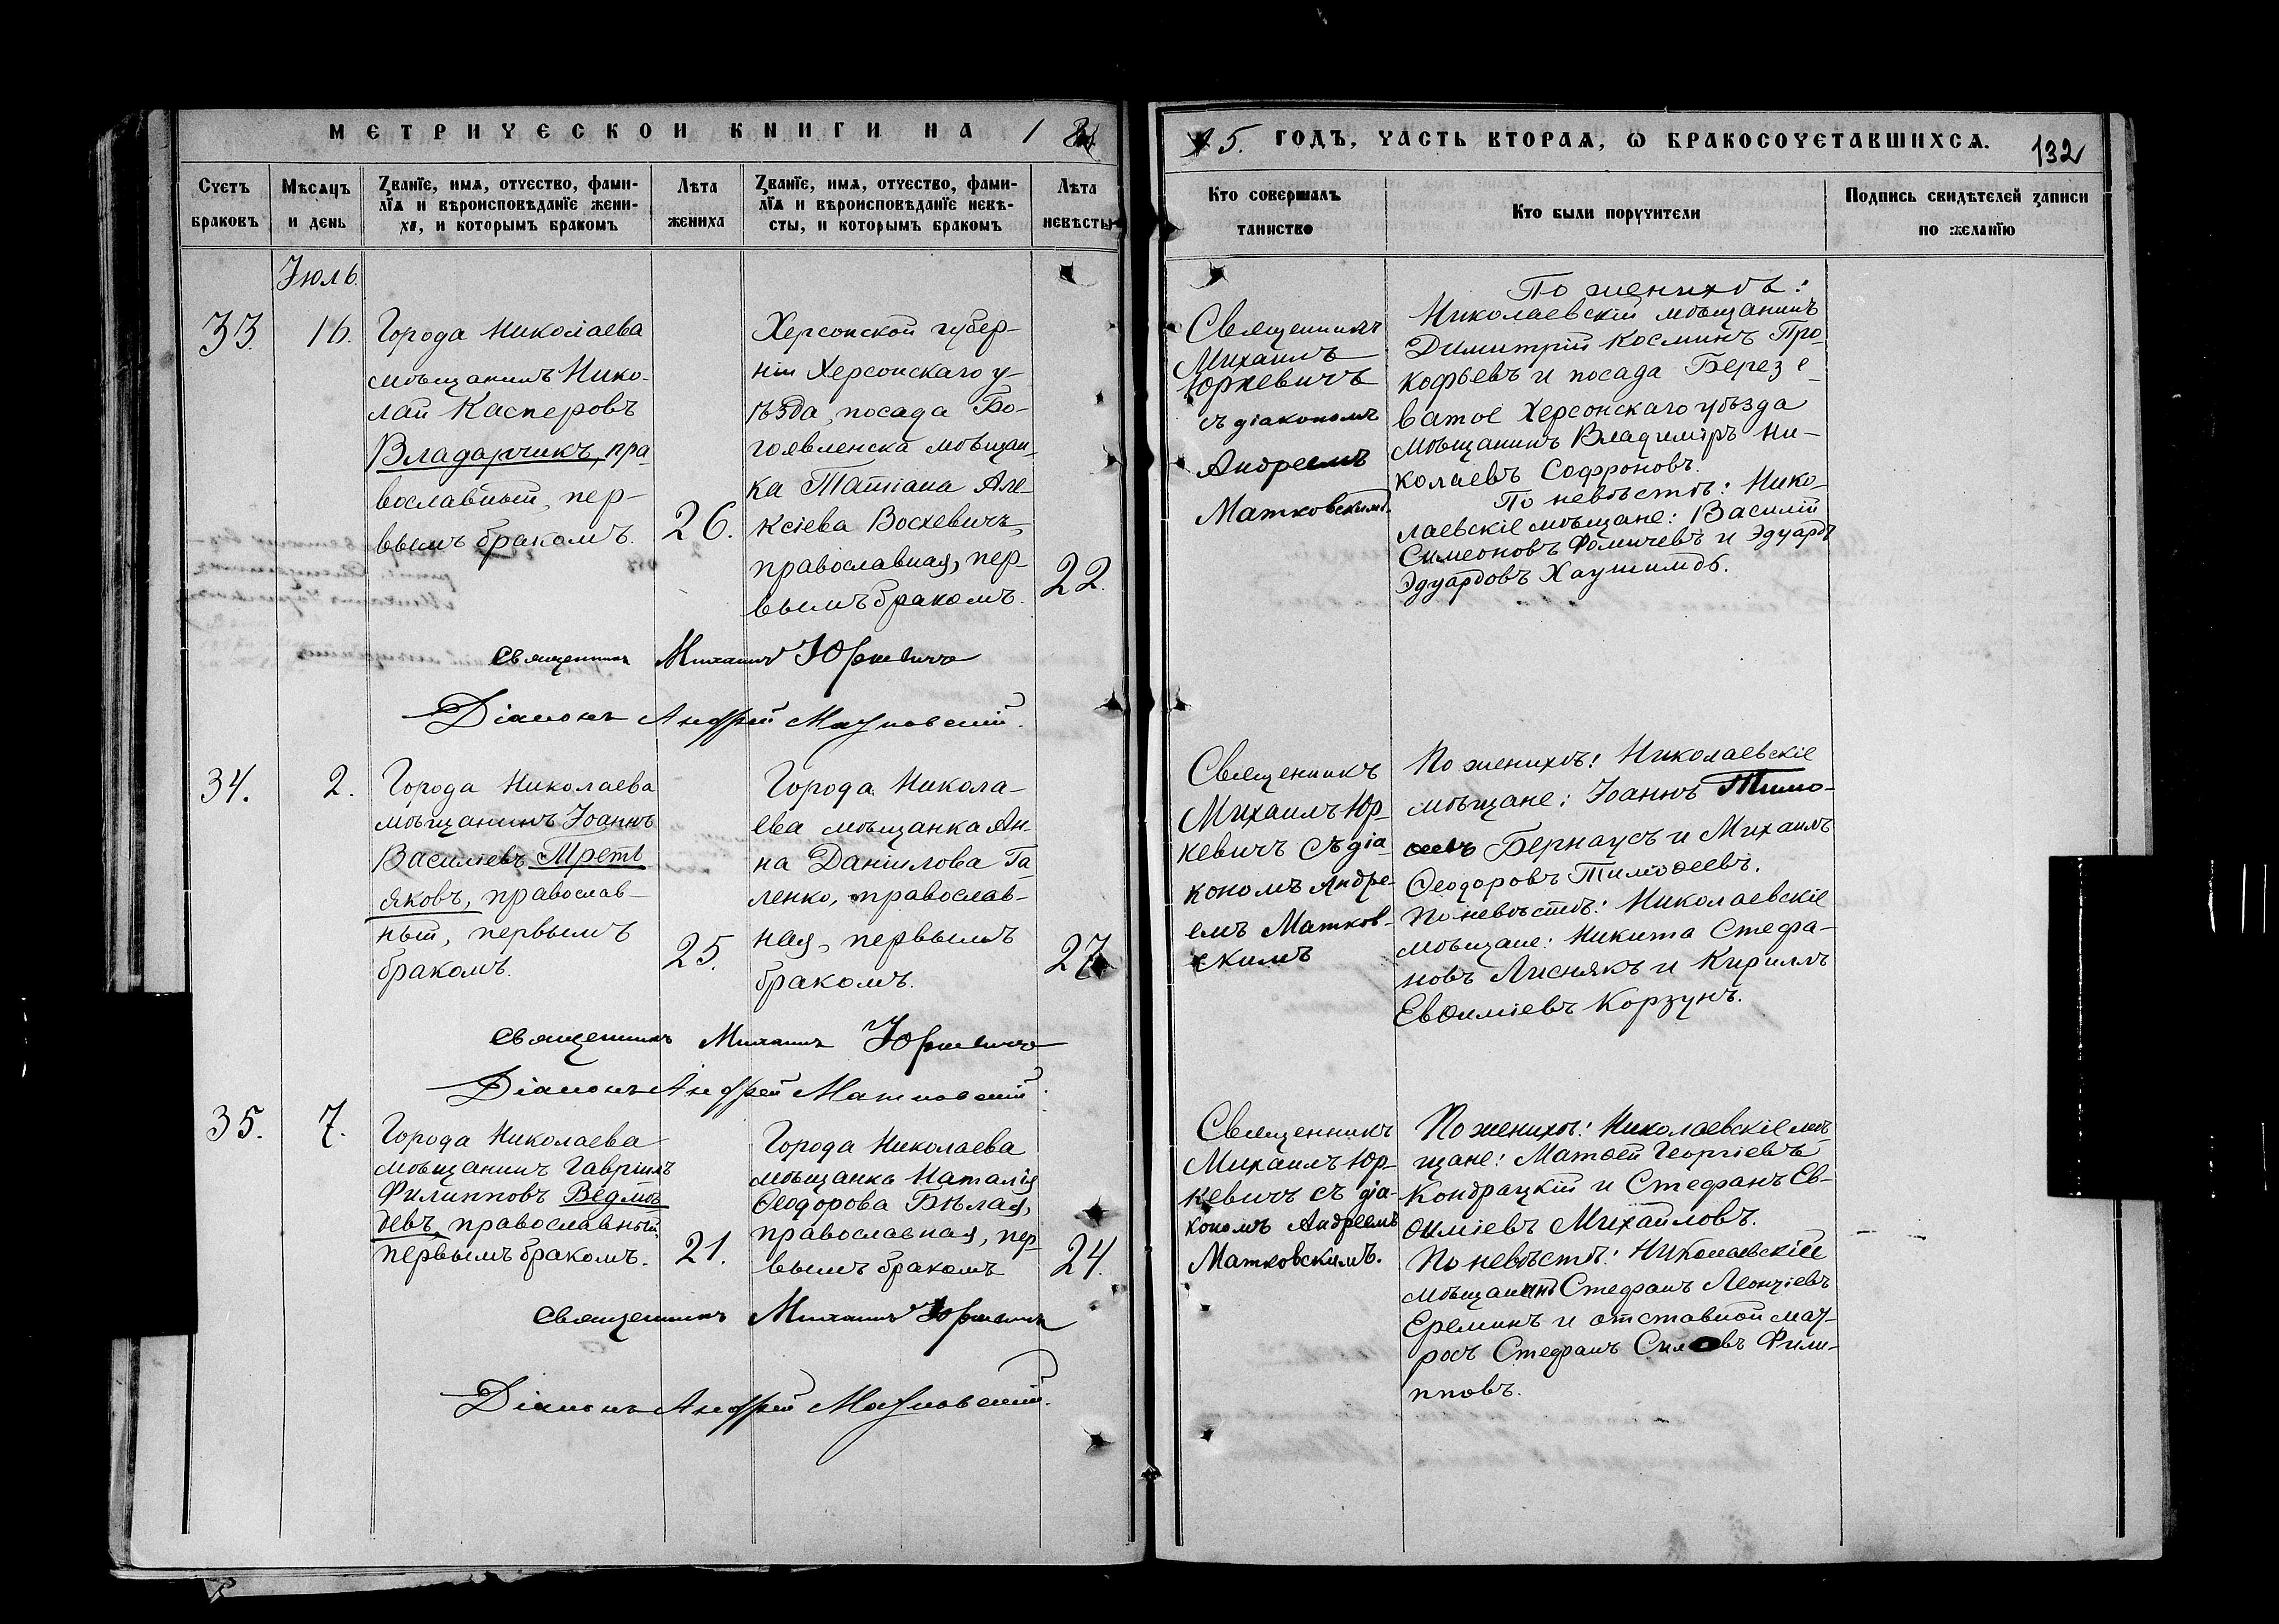 МЕТРИЧЕСКОЙ КНИГИ НА 1
5. ГОДЪ, ЧАСТЬ ВТОРАѦ, Ѡ БРАКОСОЧЕТАВШИХСѦ.
132
Счетъ браковъ
Мѣсѧцъ и день
Званїе, имѧ, отчество, фами-
лїѧ и вѣроисповѣданїе жени-
ха, и которымъ бракомъ
Лѣта жениха
Званїе, имѧ, отчество, фами-
лїѧ и вѣроисповѣданїе невѣ-
сты, и которымъ бракомъ
Лѣта невѣсты
Кто совершалъ таинство
Кто были поручители
Подпись свидѣтелей записи по желанїю
Іюль.
33.
16.
Города Николаева
мѣщанинъ Нико-
лай Касперовъ
Владарчикъ, пра-
вославный, пер-
вымъ бракомъ.
26.
Херсонской губер-
ніи Херсонскаго у-
ѣзда, посада Бо-
гоявленска мѣщан-
ка Татіана Але-
ксіева Восхевичъ,
православная, пер-
вымъ бракомъ.
22.
Священникъ
Михаилъ
Юркевичъ
съ діакономъ
Андреемъ
Матковскимъ.
По женихѣ:
Николаевскій мѣщанинъ
Димитрій Косминъ Про-
кофьевъ и посада Березе-
ватое Херсонскаго уѣзда
мѣщанинъ Владиміръ Ни-
колаевъ Софроновъ.
По невѣстѣ: Нико-
лаевскіе мѣщане: Василій
Симеоновъ Фомичевъ и Эдуардъ
Эдуардовъ
Священникъ Михаилъ Юркевичъ
Діаконъ Андрей Матковскій.
34.
2.
Города Николаева
мѣщанинъ Іоаннъ
Василіевъ Треть
яковъ, православ-
ный, первымъ
бракомъ.
25.
Города Никола-
ева мѣщанка Ан-
на Даніилова Га-
ленко, православ-
ная, первымъ
бракомъ.
27
Священникъ
Михаилъ Юр-
кевичъ съ діа-
кономъ Андре-
емъ Матков-
скимъ
По женихѣ: Николаевскіе
мѣщане: Іоаннъ Тимо-
ѳеевъ Бернаусъ и Михаилъ
Ѳеодоровъ Тимоѳеевъ.
По невѣстѣ: Николаевскіе
мѣщане: Никита Стефа-
новъ Лиснякъ и Кириллъ
Евѳиміевъ Корзунъ.
Священникъ Михаилъ Юркевичъ
Діаконъ Андрей Матковскій.
35.
7.
Города Николаева
мѣщанинъ Гавріилъ
Филипповъ Ведмѣ
девъ, православный,
первымъ бракомъ.
21.
Города Николаева
мѣщанка Наталія
Ѳеодорова Бѣлая,
православная, пер-
вымъ бракомъ
24.
Священникъ
Михаилъ Юр-
кевичъ съ діа-
кономъ Андреемъ
Матковскимъ.
По женихѣ: Николаевскіе мѣ-
щане: Матѳей Георгіевъ
Кондрацкій и Стефанъ Ев-
ѳиміевъ Михайловъ.
По невѣстѣ: Николаевскій
мѣщанинъ Стефанъ Леонтіевъ
Ереминъ и отставной мат-
росъ Стефанъ Филип-
повъ.
Священникъ Михаилъ Юркевичъ
Діаконъ Андрей Матковскій.